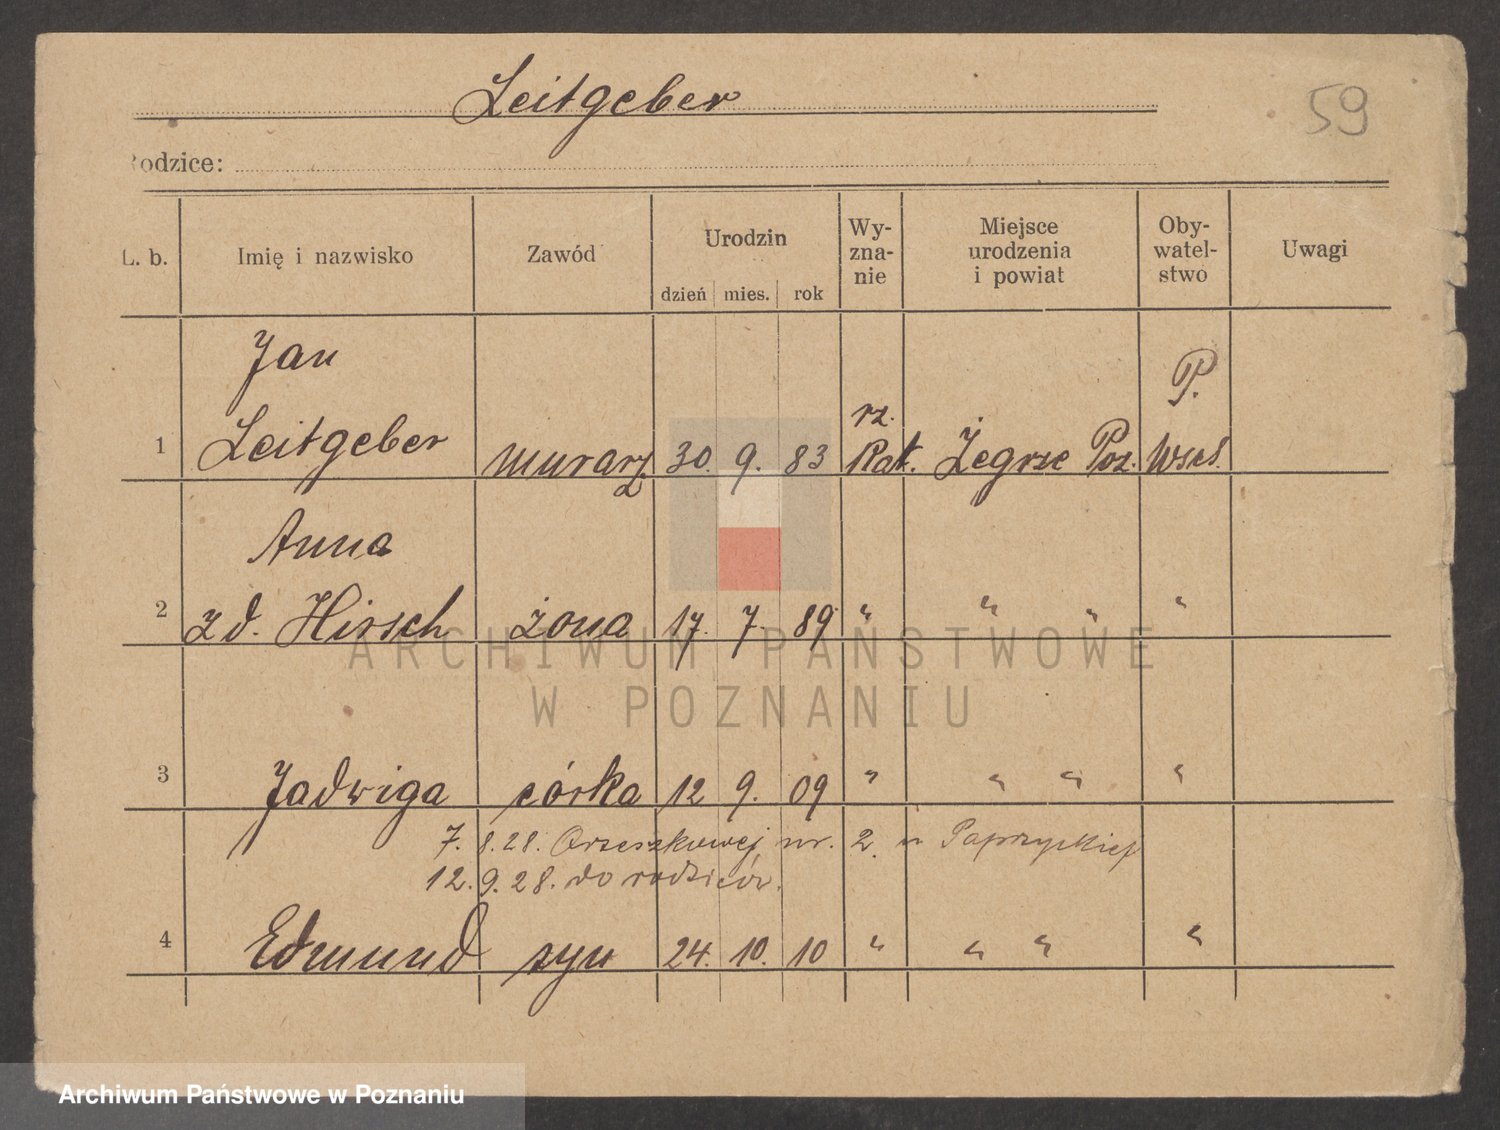 Leitgeber
59
Rodzice:
L. b. Imię i nazwisko Zawód Urodzin dzień mies. rok Wy-zna-nie Miejsce urodzenia i powiat Oby-watel-stwo Uwagi
Jan P.
rz.
1 Leitgeber murarz 30. 9. 83 Kat. Żegrze Poz.
Anna
2 zd. Hirsch żona 17. 7. 89 " " " "
3 Jadwiga córka 12 9. 09 " " " "
7. 8. 28. Orzeszkowej nr. 2. u Paprzyckiej
12. 9. 28. do rodziców.
4 Edmund syn 24. 10. 10 " " " "
ARCHIWUM PAŃSTWOWE
W POZNANIU
Archiwum Państwowe w Poznaniu